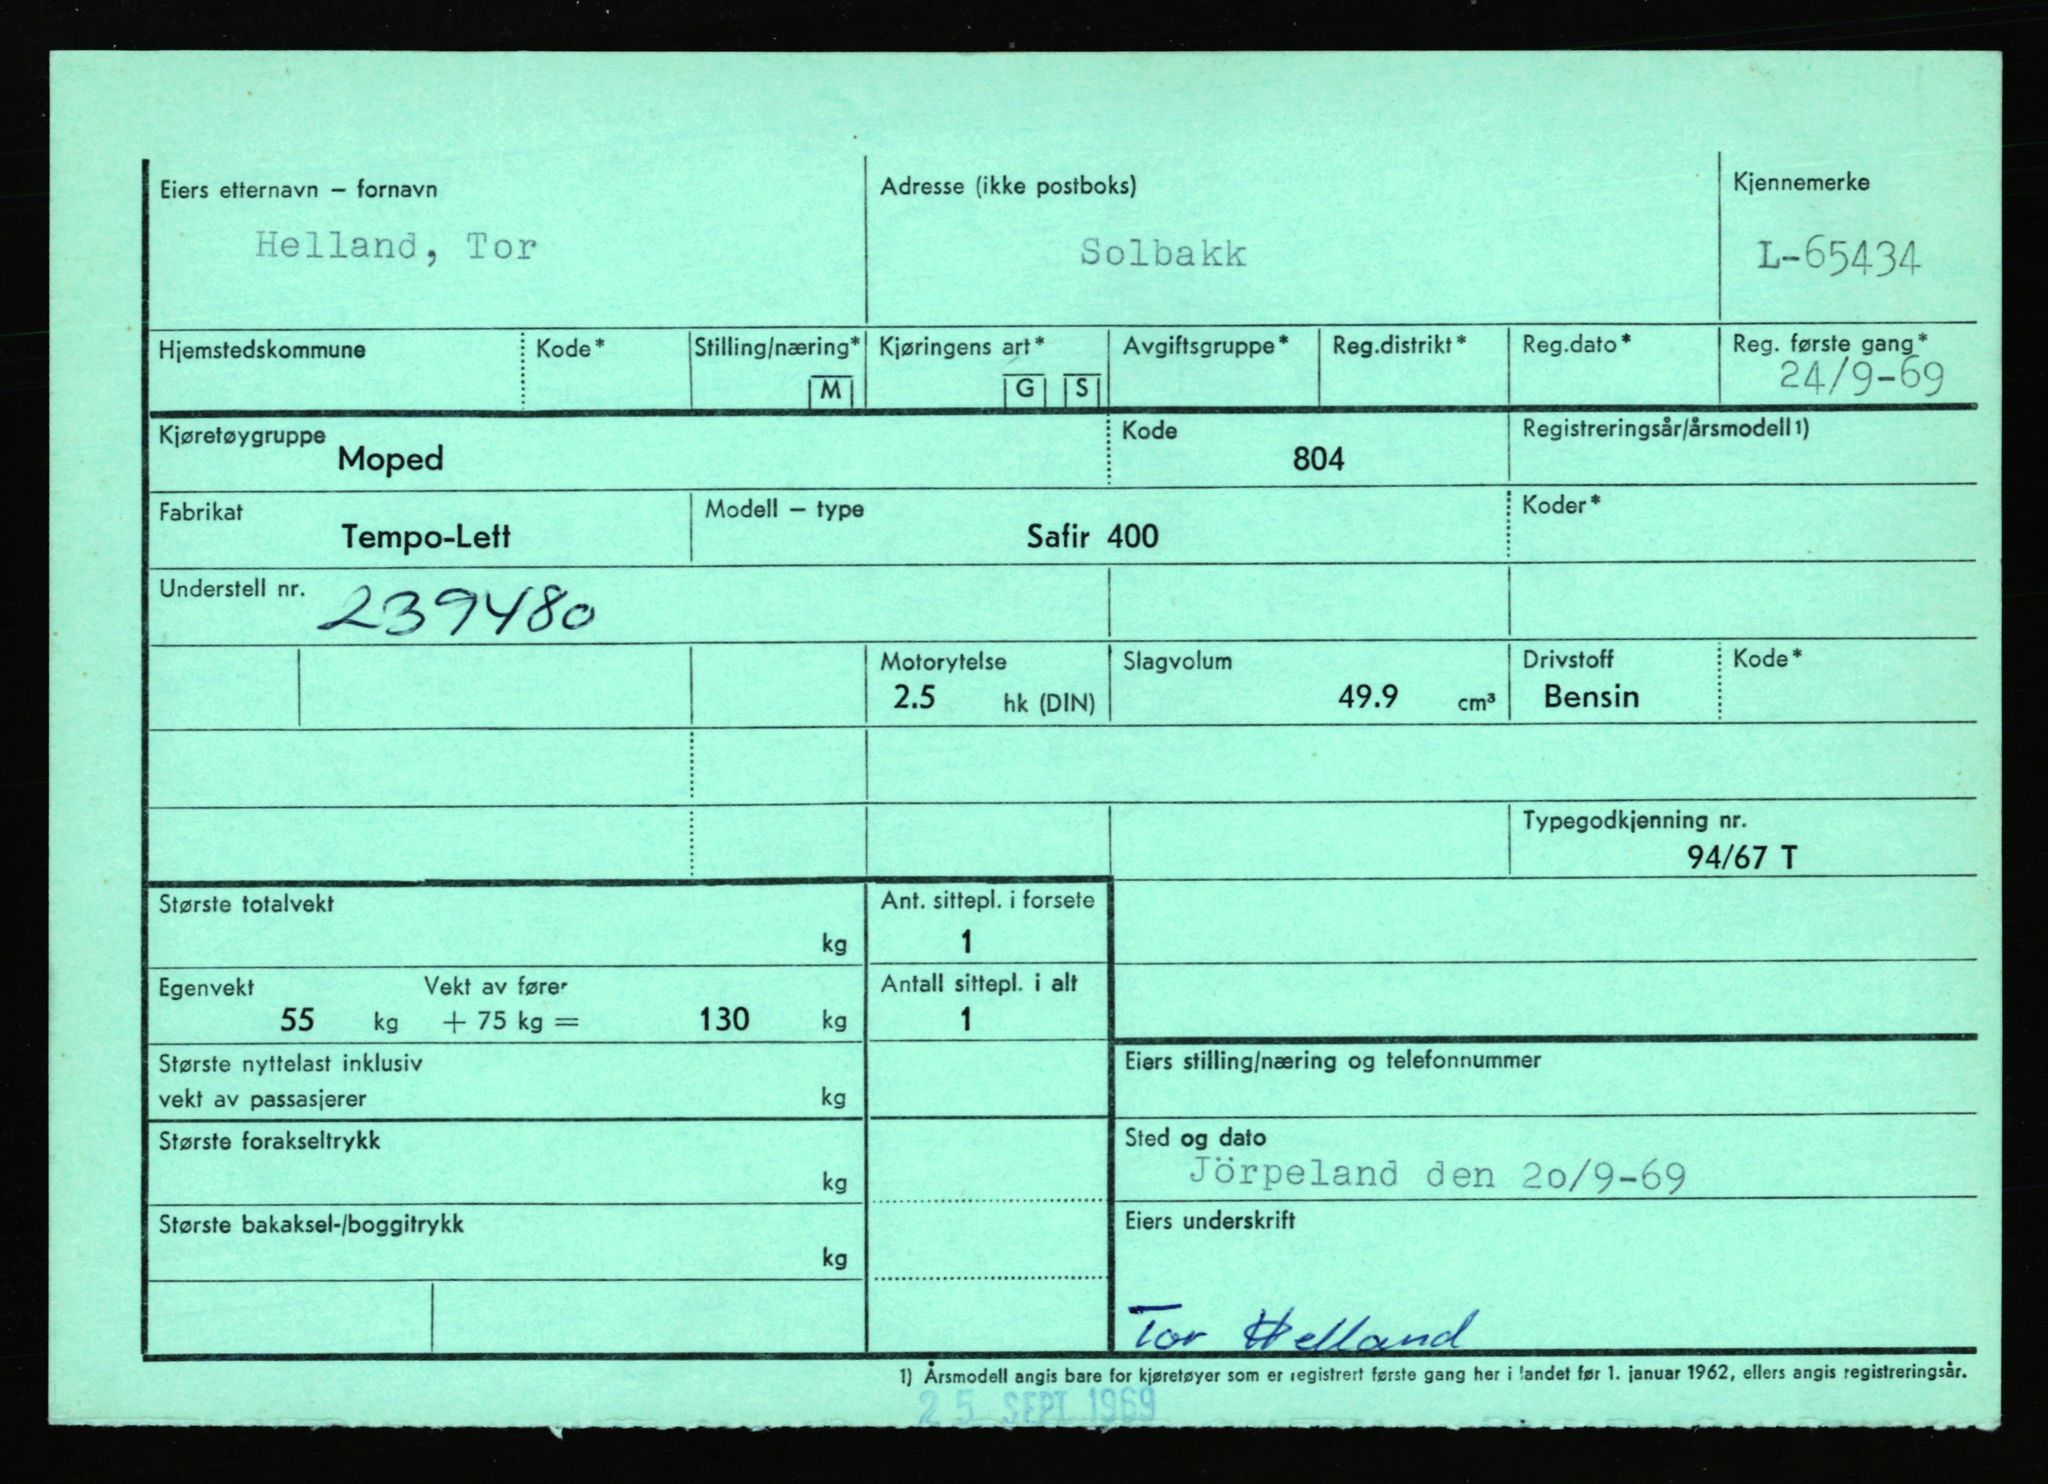 Eiers etternavn – fornavn
Helland, Tor
Adresse (ikke postboks)
Solbakk
Kjennemerke
L-65434
Hjemstedskommune
Kode*
Stilling/næring*
M
Kjøringens art*
G S
Avgiftsgruppe*
Reg.distrikt*
Reg.dato*
Reg. første gang*
24/9-69
Kjøretøygruppe
Moped
Kode
804
Registreringsår/årsmodell 1)
Fabrikat
Tempo-Lett
Modell – type
Safir 400
Koder*
Understell nr.
239480
Motorytelse
2.5 hk (DIN)
Slagvolum
49.9 cm³
Drivstoff
Bensin
Kode*
Typegodkjenning nr.
94/67 T
Største totalvekt
kg
Ant. sittepl. i forsete
1
Egenvekt
55 kg
Vekt av fører
+ 75 kg = 130 kg
Antall sittepl. i alt
1
Største nyttelast inklusiv
vekt av passasjerer kg
Eiers stilling/næring og telefonnummer
Største forakseltrykk
kg
Sted og dato
Jörpeland den 20/9-69
Største bakaksel-/boggitrykk
kg
Eiers underskrift
Tor Helland
1) Årsmodell angis bare for kjøretøyer som er registrert første gang her i landet før 1. januar 1962, ellers angis registreringsår.
25 SEPT. 1969